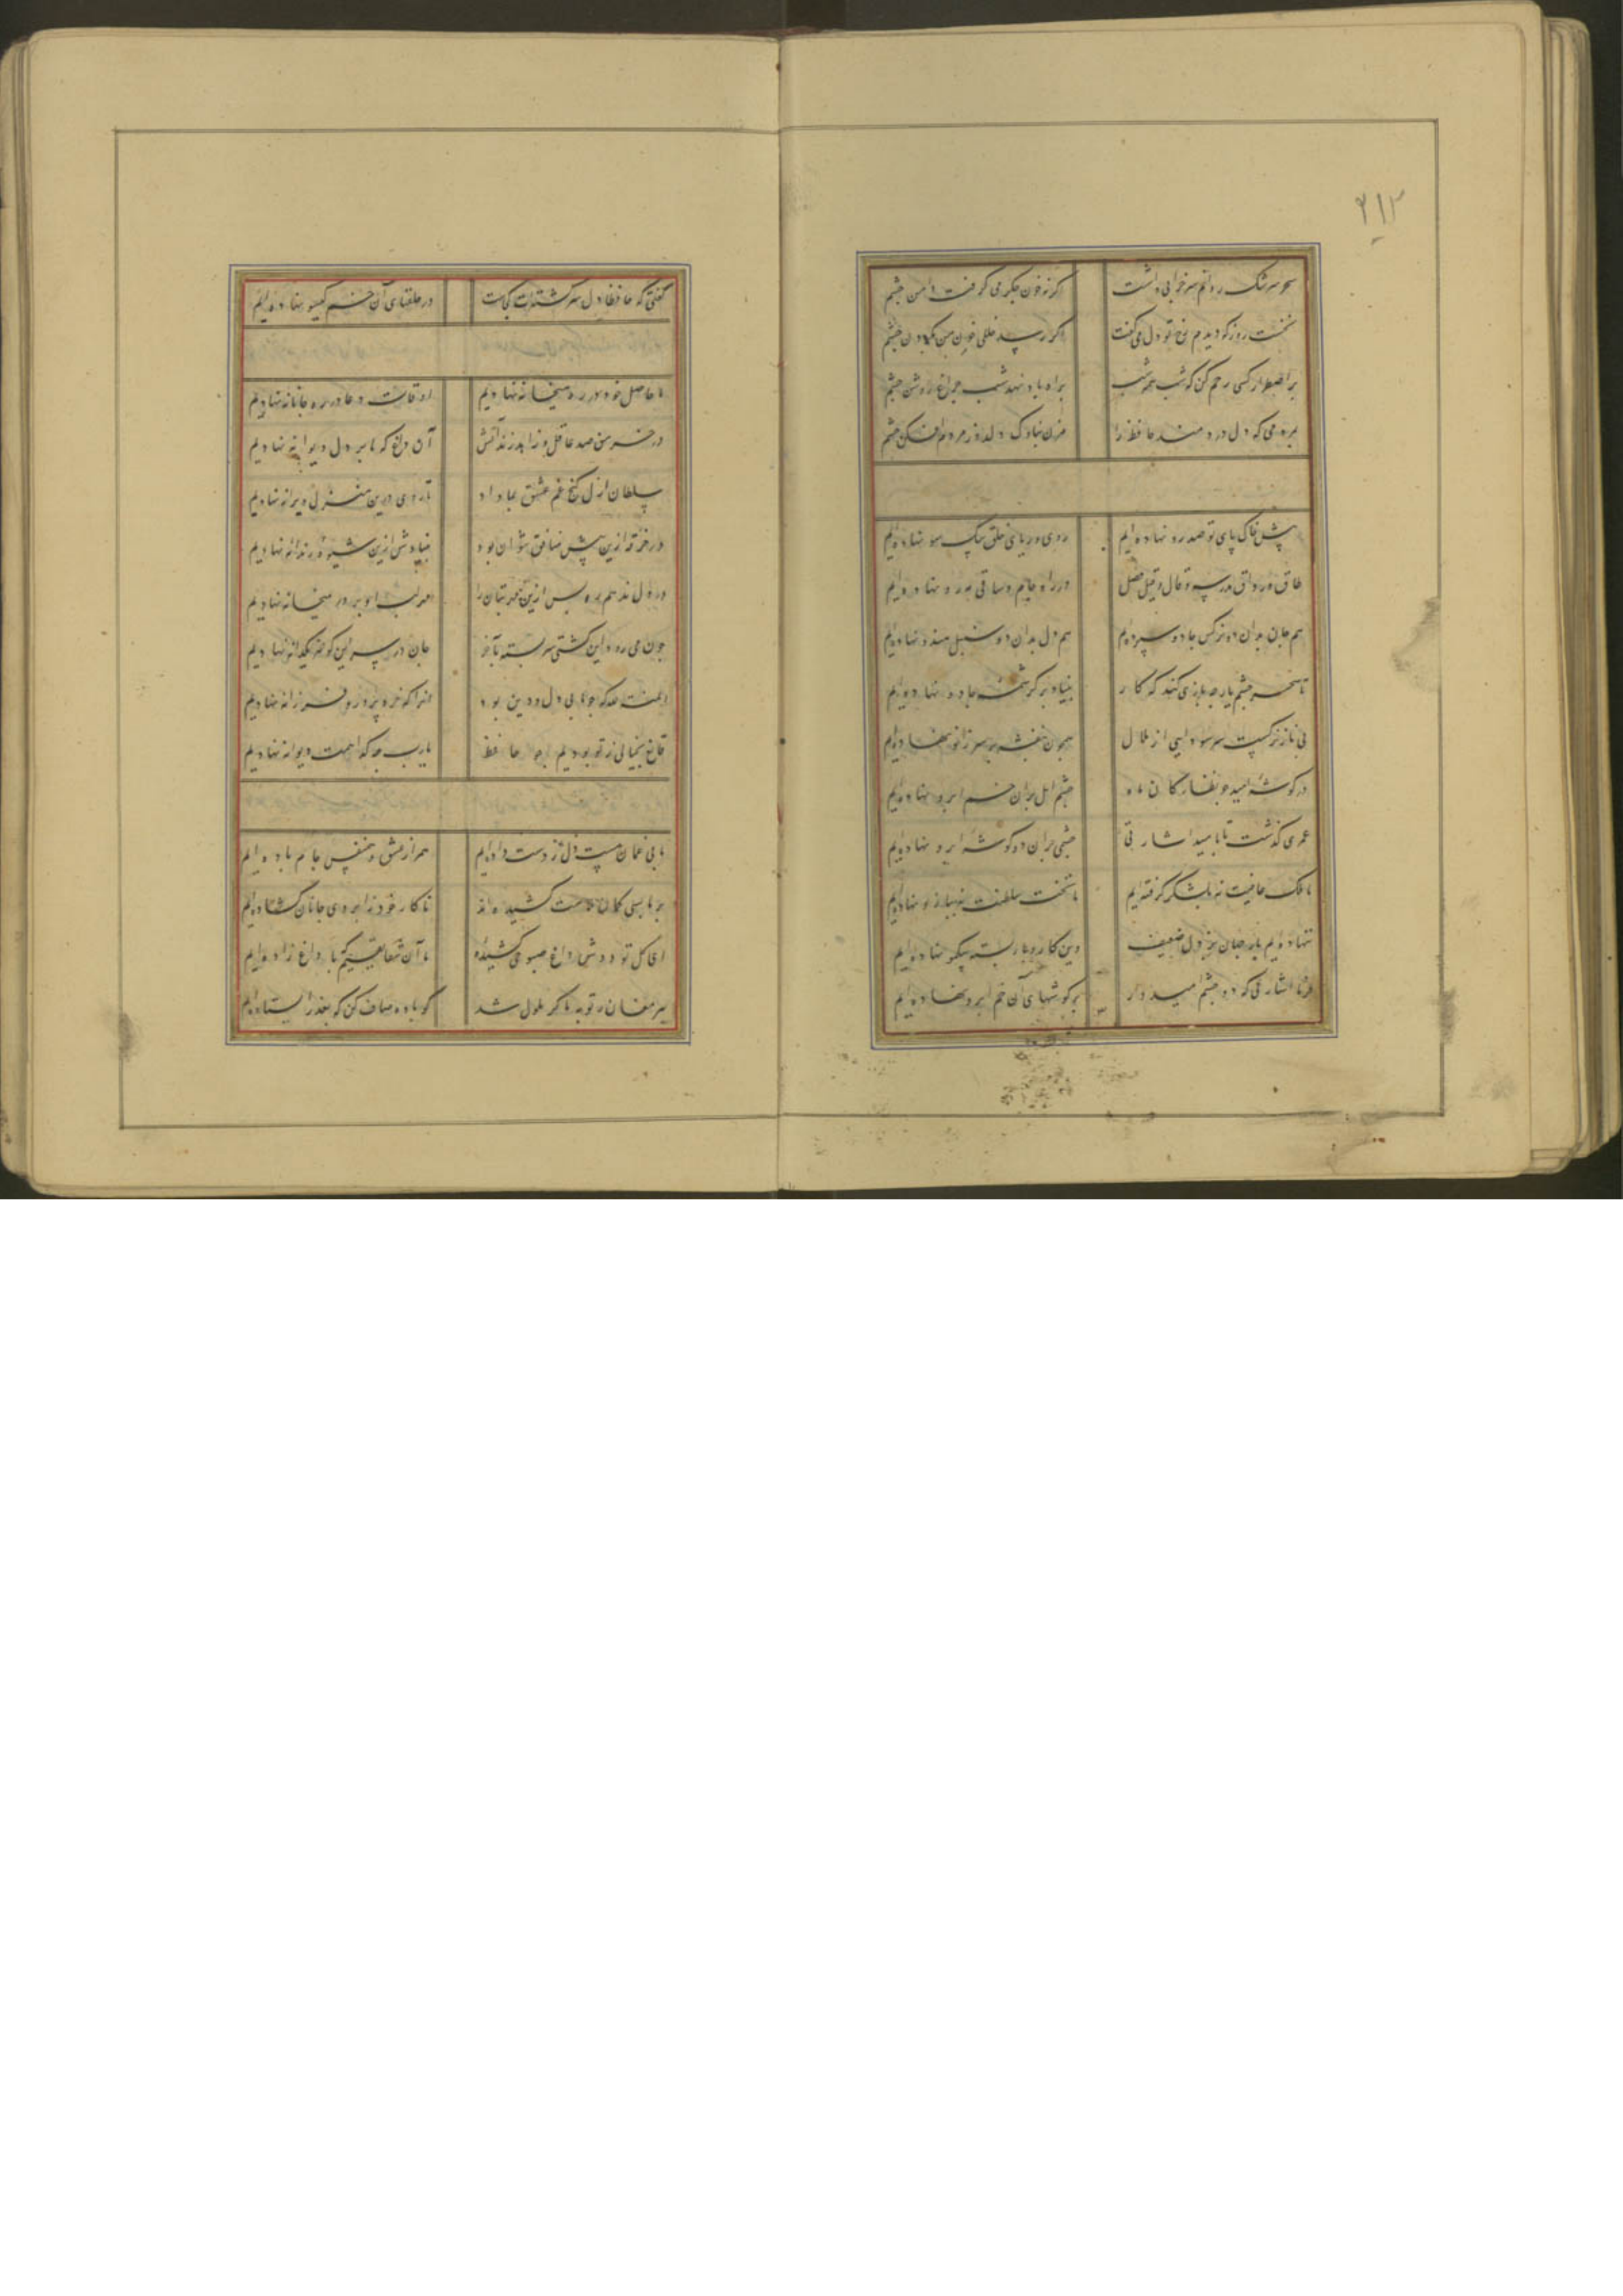 ۲۱۳
سحر سرشک روانم سر خرابی داشت
کرنه خون جکر می کرفت دامن جشم
نخست روز که دیدم رخ تو دل می کفت
اکر رسد خللی خون من بکردن جشم
کن که شب همه شب
براه باد نهد شب جراغ روشن جشم
بمردمی که دل دردمند حافظ را
مزن بناوک دلدوز مردم افکن جشم
پیش خاک پای تو صد رو نهاده ایم
روی و ریای خلق بیک سو نهاده ایم
طاق و رواق مدرسه و قال و قیل فضل
در راه جام و ساقی مه رو نهاده ایم
هم جان بدان دو نرکس جادو سپرده ایم
هم دل بدان دو سنبل هندو نهاده ایم
تا سحر جشم یار جه بازی کند که کار
بنیاد بر کرشمه جادو نهاده ایم
بی ناز نرکست سر سودایی از ملال
همجون بنفشه بر سر زانو نهاده ایم
در کوشه امید جو نظارکان ماه
جشم امل بران خم ابرو نهاده ایم
عمری کذشت تا بامید اشارتی
جشمی بران دو کوشه ابرو نهاده ایم
ما ملک عافیت نه بلشکر کرفته ایم
ما تخت سلطنت نه ببازو نهاده ایم
ننهاده ایم بار جهان بر دل ضعیف
وین کار و بار بسته بیکمو نهاده ایم
فرما اشارتی که دو جشم امیدوار
بر کوشهای آن خم ابرو نهاده ایم
کفتی که حافظا دل سرکشته ات کجاست
در حلقهای آن خم کیسو نهاده ایم
ما حاصل خود در ره میخانه نهادیم
اوقات دعا در ره جانانه نهادیم
در خرمن صد عاقل و زاهد زند آتش
آن داغ که ما بر دل دیوانه نهادیم
سلطان ازل کنج غم عشق بما داد
تا روی درین منزل ویرانه نهادیم
در خرقه ازین پیش منافق نتوان بود
بنیادش ازین شیوه رندانه نهادیم
در دل ندهم ره پس ازین مهر بتان را
مهر لب او بر در میخانه نهادیم
جون می رود این کشتی سرکشته تا آخر
جان در سر این کوهر یکدانه نهادیم
المنة لله که جو ما بی دل و دین بود
آنرا که خرد پرور و فرزانه نهادیم
قانع بخیالی ز تو بودیم جو حافظ
یارب جه کدا همت دیوانه نهادیم
ما بی غمان مست دل از دست داده ایم
همراز عشق و همنفس جام باده ایم
بر ما بسی کمان ملامت کشیده اند
تا کار خود ز ابروی جانان کشاده ایم
ای کل تو دوش داغ صبوحی کشیده
ما آن شقایقیم که با داغ زاده ایم
پیر مغان ز توبه ما کر ملول شد
کو باده صاف کن که بعذر ایستاده ایم